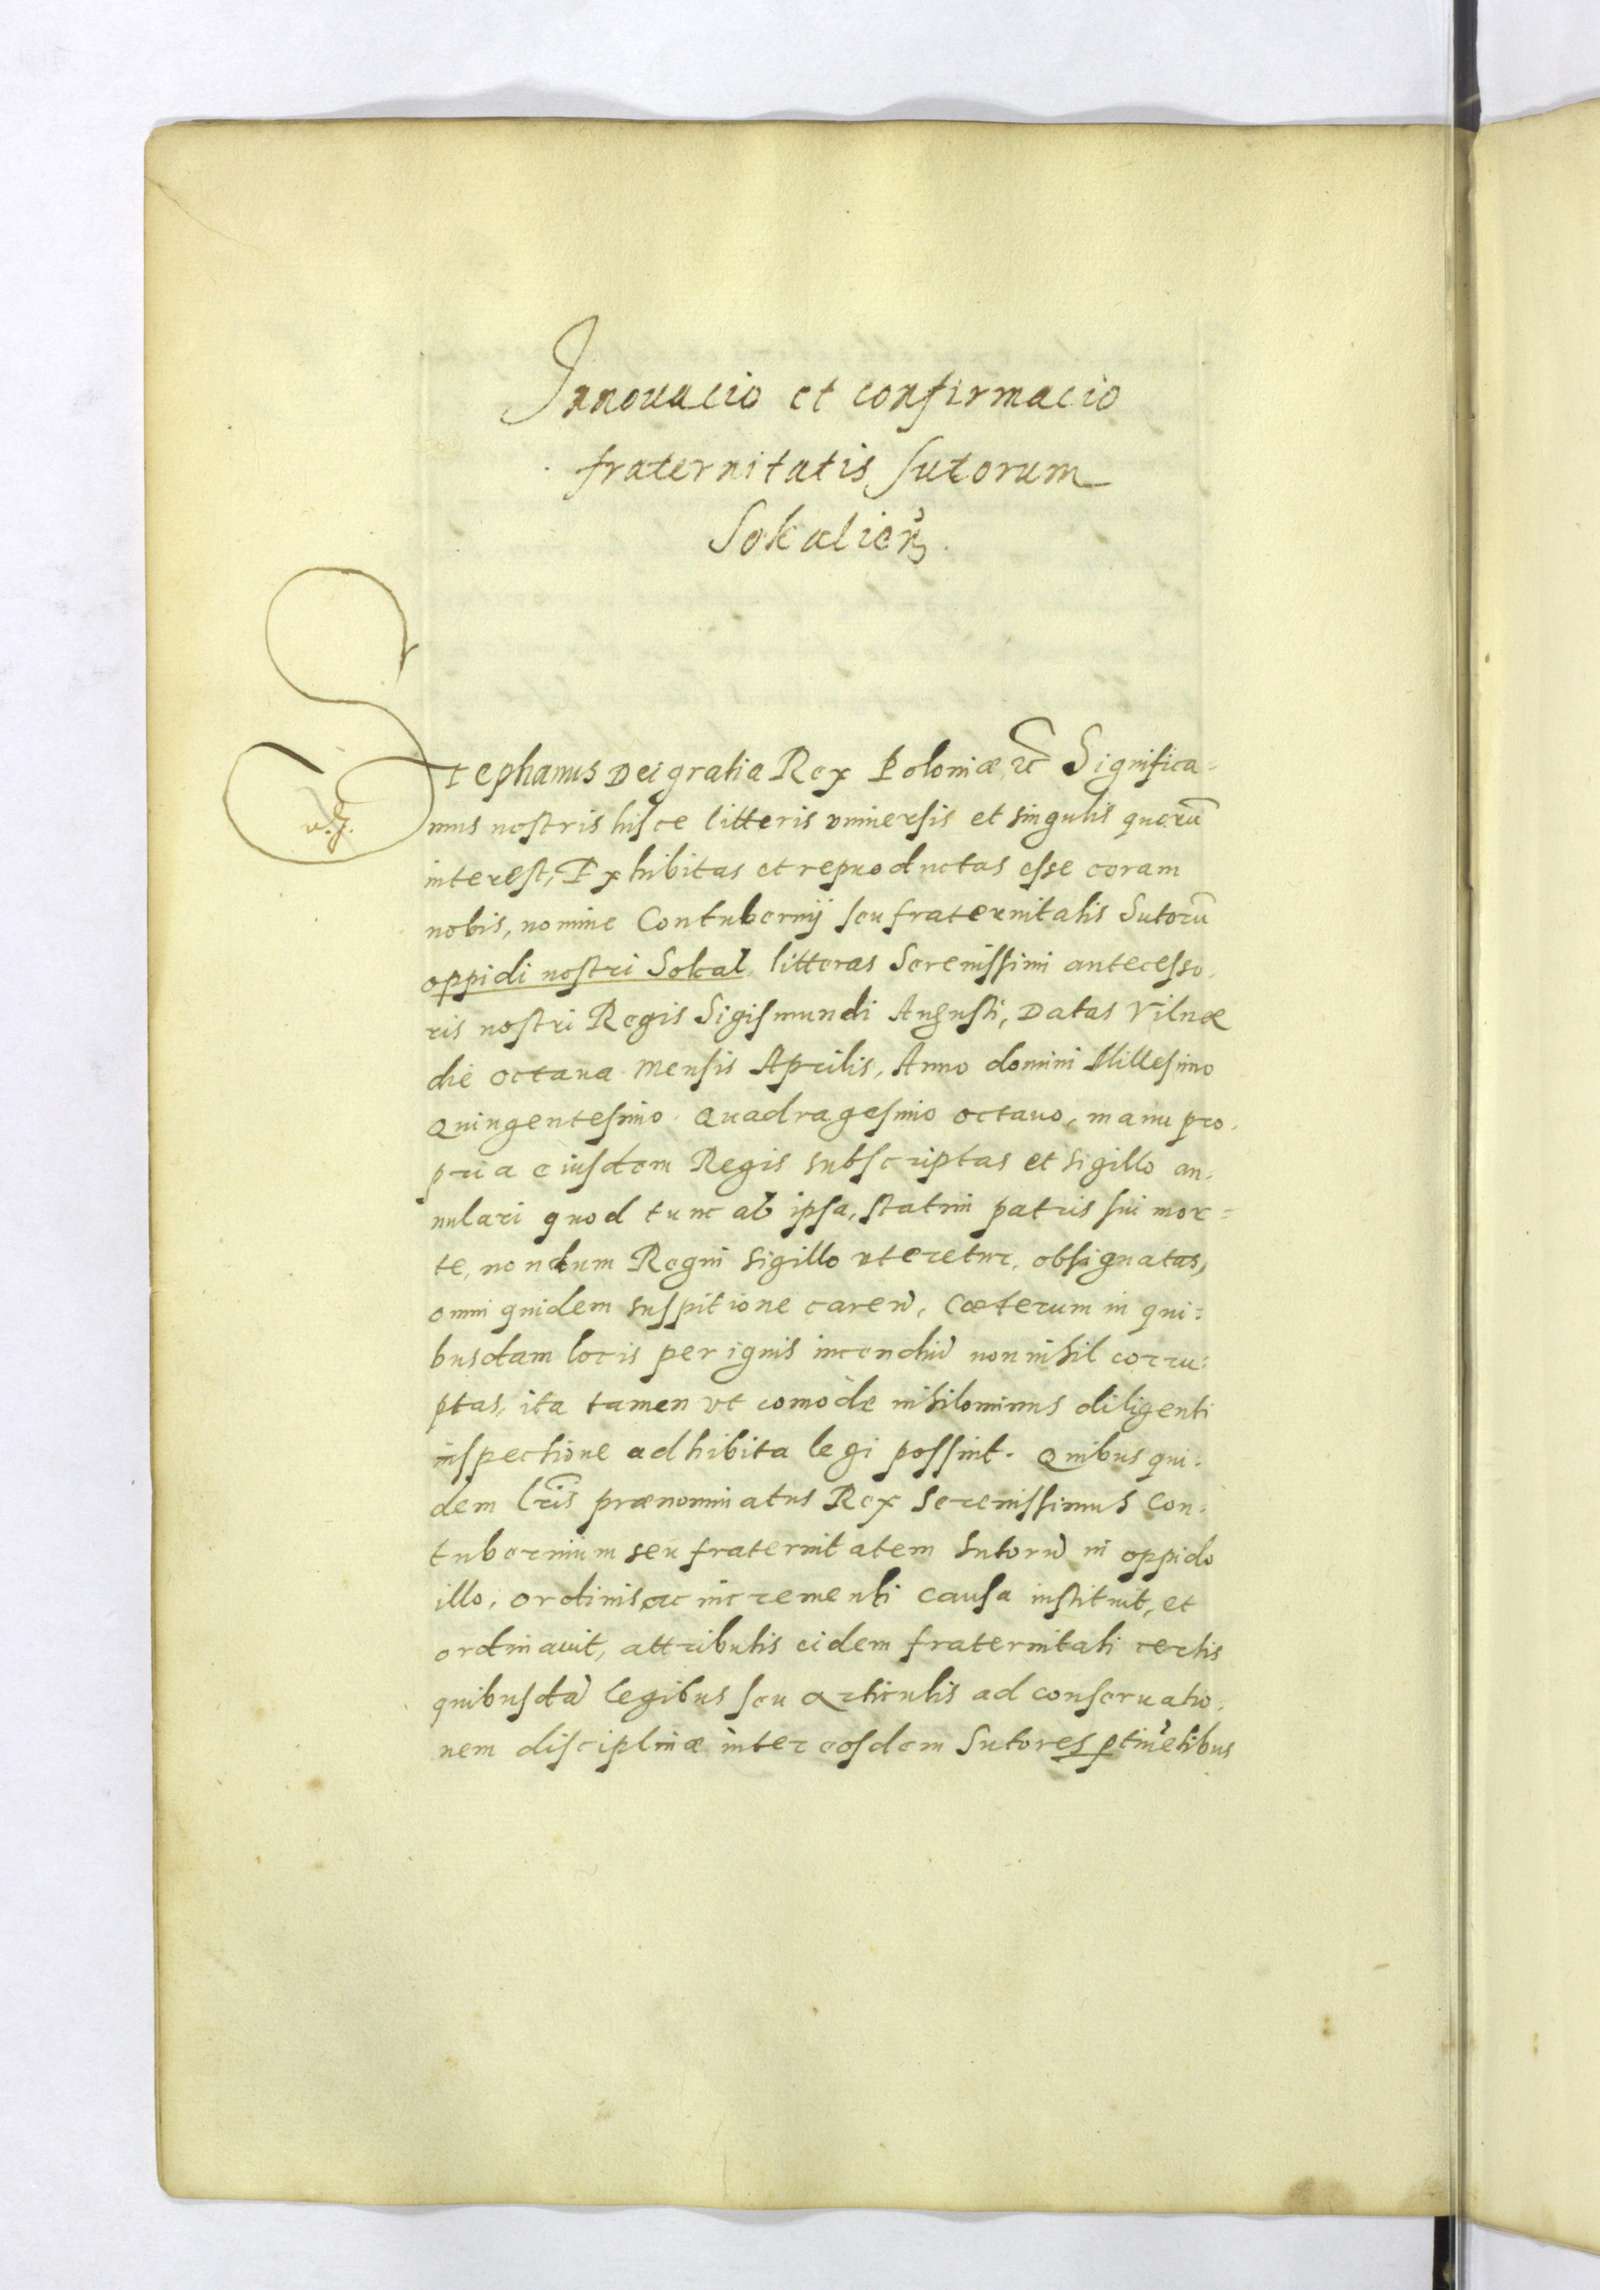 Innouacio et confirmacio
fraternitatis sutorum
Sokalien̄
Stephanus Dei gratia Rex Poloniæ ꝛc̃ Significa-
mus nostris hisce litteris vniuersis et singulis quorū
interest, Exhibitas et reproductas esse coram
nobis, nomine Contubernij seu fraternitatis Sutorū
oppidi nostri Sokal litteras Serenissimi antecesso-
ris nostri Regis Sigismundi Augusti, Datas Vilnæ
die octaua Mensis Aprilis, Anno domini Millesimo
Quingentesimo Quadragesimo octauo, manu pro-
pria eiusdem Regis subscriptas et sigillo an-
nulari quod tunc ab ipsa, statim patris sui mor=
te, nondum Regni sigillo vteretur, obsignatas,
omni quidem suspitione caren̄, Cæterum in qui=
busdam locis per ignis incendiū nonnihil corru=
ptas, ita tamen vt comòde nihilominus diligenti
inspectione adhibita legi possint. Quibus qui-
dem l̃ris prænominatus Rex Serenissimus Con-
tubernium seu fraternitatem Sutorū in oppido
illo, ordinis ac incrementi causa instituit, et
ordinauit, attributis eidem fraternitati certis
quibusdā legibus seu articulis ad conseruatio-
nem disciplinæ inter eosdem Sutores ꝑtinētibus